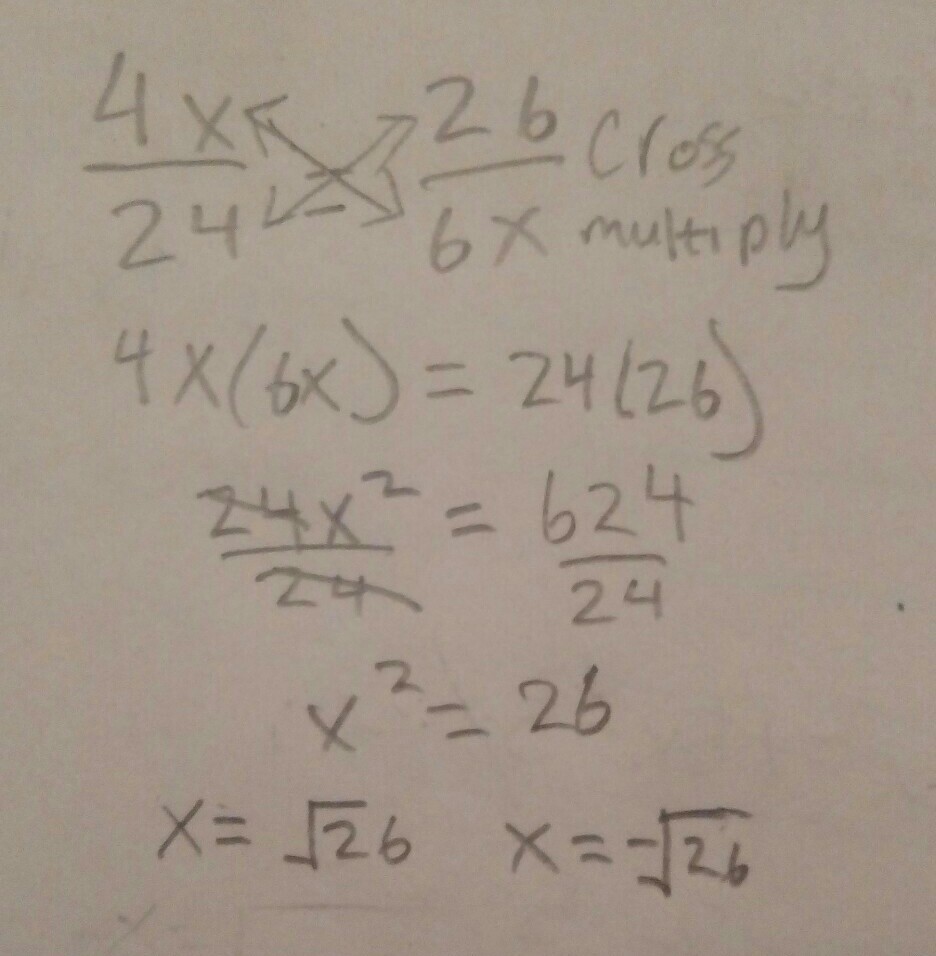 4x/24 = 26/6x Cross multiply
4x(6x) = 24(26)
24x²/24 = 624/24
x² = 26
x = √26 x = -√26